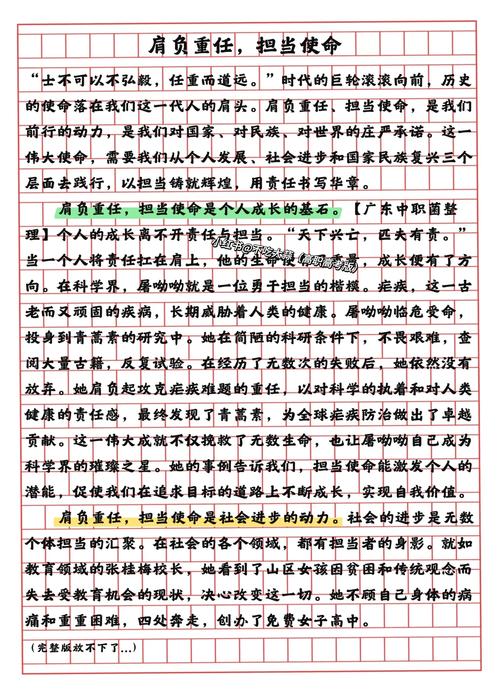 肩负重任，担当使命
“士不可以不弘毅，任重而道远。”时代的巨轮滚滚向前，历史
的使命落在我们这一代人的肩头。肩负重任、担当使命，是我们
前行的动力，是我们对国家、对民族、对世界的庄严承诺。这一
伟大使命，需要我们从个人发展、社会进步和国家民族复兴三个
层面去践行，以担当铸就辉煌，用责任书写华章。
肩负重任，担当使命是个人成长的基石。【广东中职菌整
理】个人的成长离不开责任与担当。“天下兴亡，匹夫有责。”
当一个人将责任扛在肩上，他的生命使 量，成长便有了
方向。在科学界，屠呦呦就是一位勇于担当的楷模。疟疾，这一古
老而又顽固的疾病，长期威胁着人类的健康。屠呦呦临危受命，
投身到青蒿素的研究中。她在简陋的科研条件下，不畏艰难，查
阅大量古籍，反复试验。在经历了无数次的失败后，她依然没有
放弃。她肩负起攻克疟疾难题的重任，以对科学的执着和对人类
健康的责任感，最终发现了青蒿素，为全球疟疾防治做出了卓越
贡献。这一伟大成就不仅挽救了无数生命，也让屠呦呦自己成为
科学界的璀璨之星。她的事例告诉我们，担当使命能激发个人的
潜能，促使我们在追求目标的道路上不断成长，实现自我价值。
肩负重任，担当使命是社会进步的动力。社会的进步是无数
个体担当的汇聚。在社会的各个领域，都有担当者的身影。就如
教育领域的张桂梅校长，她看到了山区女孩因贫困和传统观念而
失去受教育机会的现状，决心改变这一切。她不顾自己身体的病
痛和重重困难，四处奔走，创办了免费女子高中。
（完整版放不下了...）